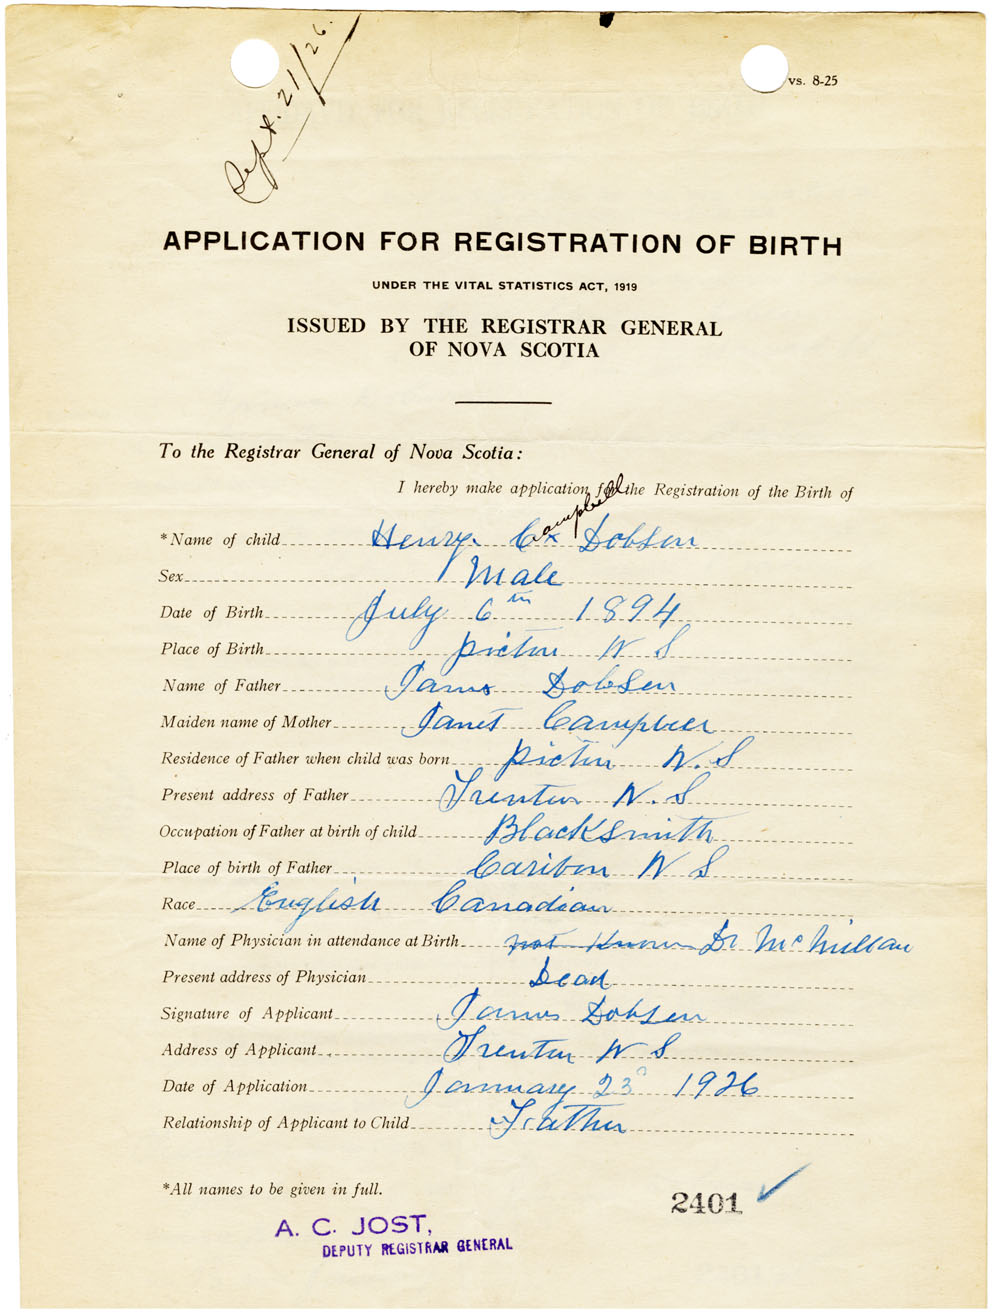 Sept. 21/26.
vs. 8-25
APPLICATION FOR REGISTRATION OF BIRTH
UNDER THE VITAL STATISTICS ACT, 1919
ISSUED BY THE REGISTRAR GENERAL
OF NOVA SCOTIA
To the Registrar General of Nova Scotia:
I hereby make application for the Registration of the Birth of
Campbell
*Name of child Henry. C Dobson
Sex Male
Date of Birth July 6th 1894
Place of Birth Pictou N S
Name of Father James Dobson
Maiden name of Mother Janet Campbell
Residence of Father when child was born Pictou N. S
Present address of Father Trenton N. S
Occupation of Father at birth of child Blacksmith
Place of birth of Father Caribou N S
Race English Canadian
Name of Physician in attendance at Birth not Known Dr McMillan
Present address of Physician Dead
Signature of Applicant James Dobson
Address of Applicant Trenton N S
Date of Application January 23 1926
Relationship of Applicant to Child Father
*All names to be given in full.
2401
A. C. JOST,
DEPUTY REGISTRAR GENERAL